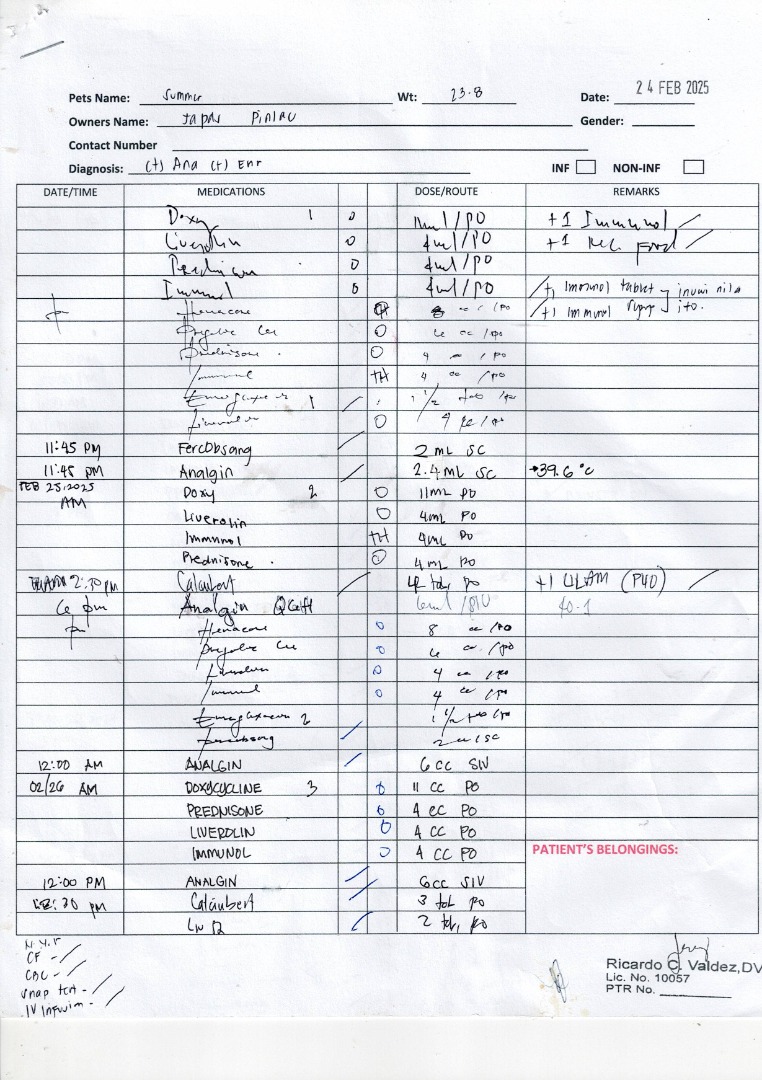 Pets Name: Summer Wt: 23.8 Date: 24 FEB 2025
Owners Name: Gender:
Contact Number
Diagnosis: (+) Ana (+) Ehr INF NON-INF
DATE/TIME MEDICATIONS DOSE/ROUTE REMARKS
Doxy 1 0 11ml/PO +1 Immunol
Liverolin 0 4ml/PO +1 Rec. food
0 4ml/PO
Immunol 0 4ml/PO +1 Immunol tablet
pm Hemacare 8 cc/po +1 Immunol
0 6 cc/po
Prednisone 0 4 cc/po
Immunol TH 4 cc/po
1 1 1/2 tab/po
Liverolin 0 4 cc/po
11:45 PM FercObsang 2 mL SC
11:45 PM Analgin 2.4 mL SC →39.6°c
FEB 25, 2025 AM Doxy 2 0 11mL PO
Liverolin 0 4mL PO
Immunol TH 4mL PO
Prednisone 0 4mL PO
2:30 PM Calcubert 4 tab po +1 ULAM (PHO)
6 pm Analgin 6ml/SIV 40.1
pm Hemacare 0 8 cc/po
0 6 cc/po
Liverolin 0 4 cc/po
Immunol 0 4 cc/po
2 1 1/2 tab/po
2 cc/SC
12:00 AM ANALGIN 6 CC SIV
02/26 AM DOXYCYCLINE 3 0 11 CC PO
PREDNISONE 0 4 cc PO
LIVEROLIN 0 4 CC PO
IMMUNOL 0 4 CC PO PATIENT'S BELONGINGS:
12:00 PM ANALGIN 6cc SIV
:30 pm Calcubert 3 tab po
2 tab, po
CF -
CBC -
Snap test -
IV Infusion -
Ricardo C. Valdez, DV
Lic. No. 10057
PTR No.